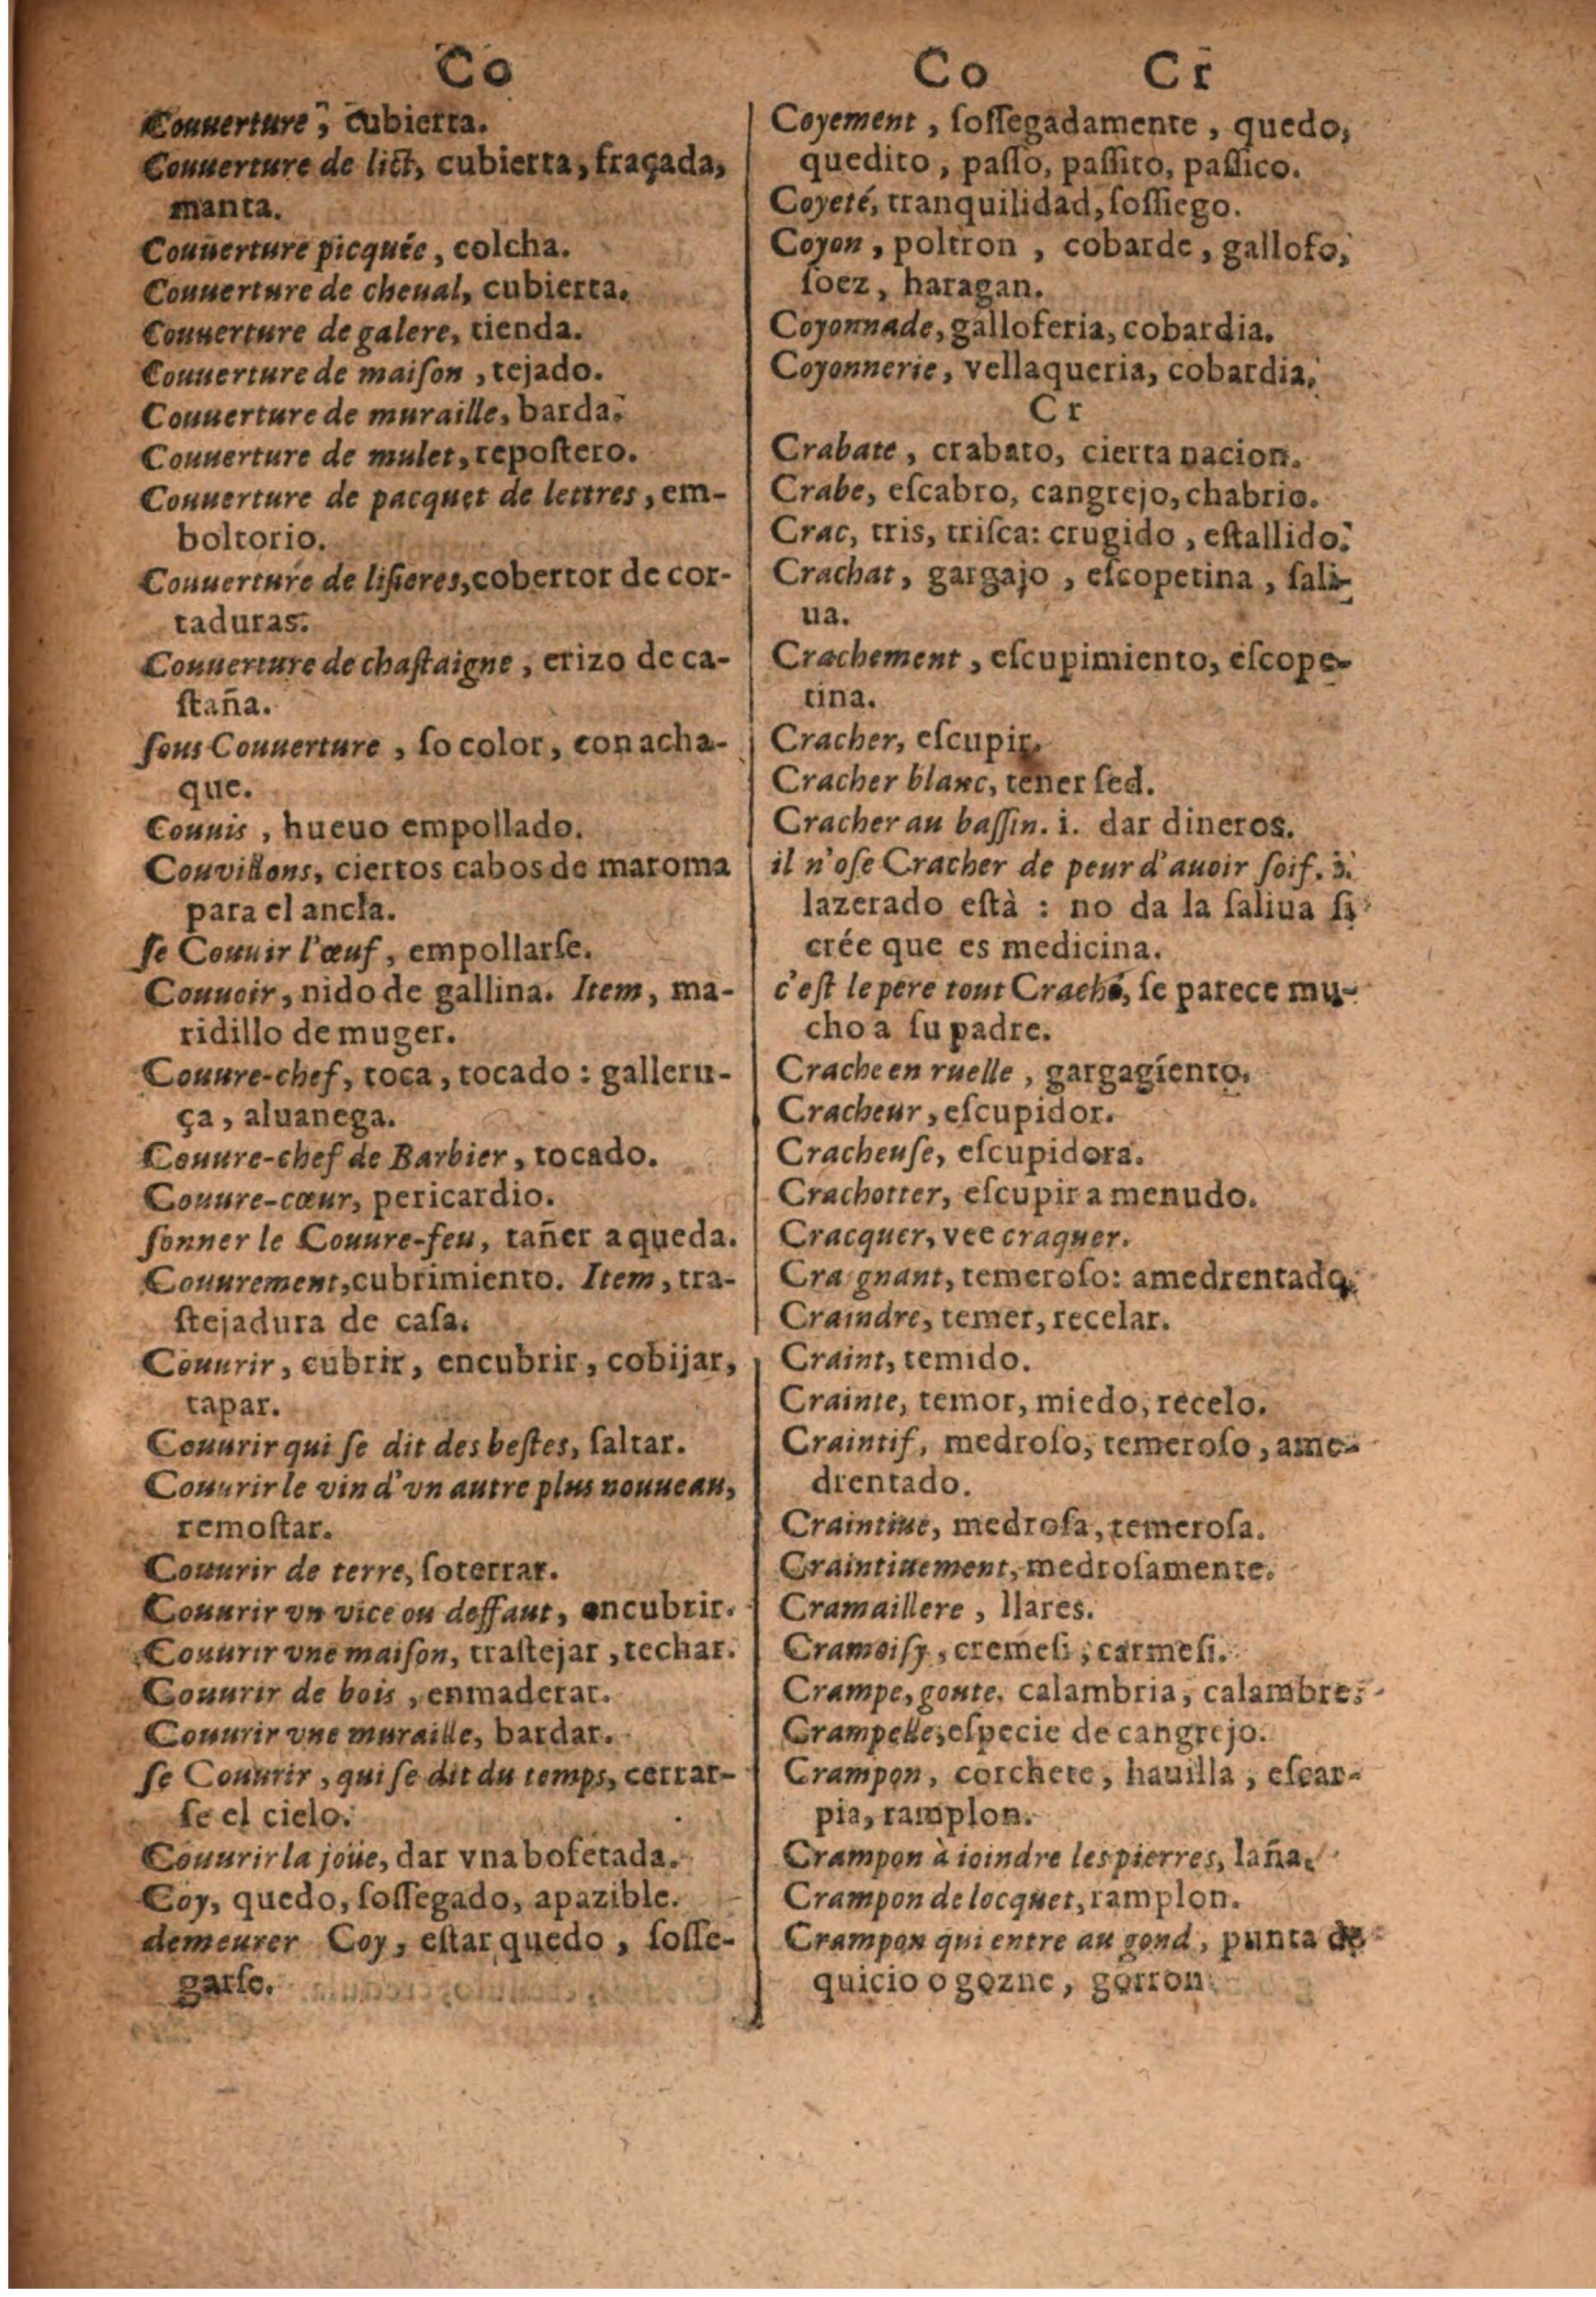 Co
Couuerture, cubierta.
Couuerture de lict, cubierta, fraçada,
manta.
Couuerture picquée, colcha.
Couuerture de cheual, cubierta.
Couuerture de galere, tienda.
Couuerture de maiſon, tejado.
Couuerture de muraille, barda.
Couuerture de mulet, repoſtero.
Couuerture de pacquet de lettres, em-
boltorio.
Couuerture de liſieres, cobertor de cor-
taduras.
Couuerture de chaſtaigne, erizo de ca-
ſtaña.
ſous Couuerture, ſo color, con acha-
que.
Couuis, hueuo empollado.
Couvillons, ciertos cabos de maroma
para el ancla.
ſe Couuir l'œuf, empollarſe.
Couuoir, nido de gallina. Item, ma-
ridillo de muger.
Couure-chef, toca, tocado : galleru-
ça, aluanega.
Couure-chef de Barbier, tocado.
Couure-cœur, pericardio.
ſonner le Couure-feu, tañer a queda.
Couurement, cubrimiento. Item, tra-
ſtejadura de caſa.
Couurir, cubrir, encubrir, cobijar,
tapar.
Couurir qui ſe dit des beſtes, ſaltar.
Couurir le vin d'vn autre plus nouueau,
remoſtar.
Couurir de terre, ſoterrar.
Couurir vn vice ou deffaut, encubrir.
Couurir vne maiſon, traſtejar, techar.
Couurir de bois, enmaderar.
Couurir vne muraille, bardar.
ſe Couurir, qui ſe dit du temps, cerrar-
ſe el cielo.
Couurir la joüe, dar vna bofetada.
Coy, quedo, ſoſſegado, apazible.
demeurer Coy, eſtar quedo, ſoſſe-
garſe.
Co Cr
Coyement, ſoſſegadamente, quedo,
quedito, paſſo, paſſito, paſſico.
Coyeté, tranquilidad, ſoſſiego.
Coyon, poltron, cobarde, gallofo,
ſoez, haragan.
Coyonnade, galloferia, cobardia.
Coyonnerie, vellaqueria, cobardia.
Cr
Crabate, crabato, cierta nacion.
Crabe, eſcabro, cangrejo, chabrio.
Crac, tris, triſca: crugido, eſtallido.
Crachat, gargajo, eſcopetina, ſali-
ua.
Crachement, eſcupimiento, eſcope-
tina.
Cracher, eſcupir.
Cracher blanc, tener ſed.
Cracher au baſſin. i. dar dineros.
il n'oſe Cracher de peur d'auoir ſoif. i.
lazerado eſtà : no da la ſaliua ſi
crée que es medicina.
c'eſt le pere tout Craché, ſe parece mu-
cho a ſu padre.
Crache en ruelle, gargagiento.
Cracheur, eſcupidor.
Cracheuſe, eſcupidora.
Crachotter, eſcupir a menudo.
Cracquer, vee craquer.
Craignant, temeroſo: amedrentado.
Craindre, temer, recelar.
Craint, temido.
Crainte, temor, miedo, recelo.
Craintif, medroſo, temeroſo, ame-
drentado.
Craintiue, medroſa, temeroſa.
Craintiuement, medroſamente.
Cramaillere, llares.
Cramoiſy, cremeſi, carmeſi.
Crampe, goute. calambria, calambre.
Crampelle, eſpecie de cangrejo.
Crampon, corchete, hauilla, eſcar-
pia, ramplon.
Crampon à ioindre les pierres, laña.
Crampon de locquet, ramplon.
Crampon qui entre au gond, punta de
quicio o gozne, gorron.